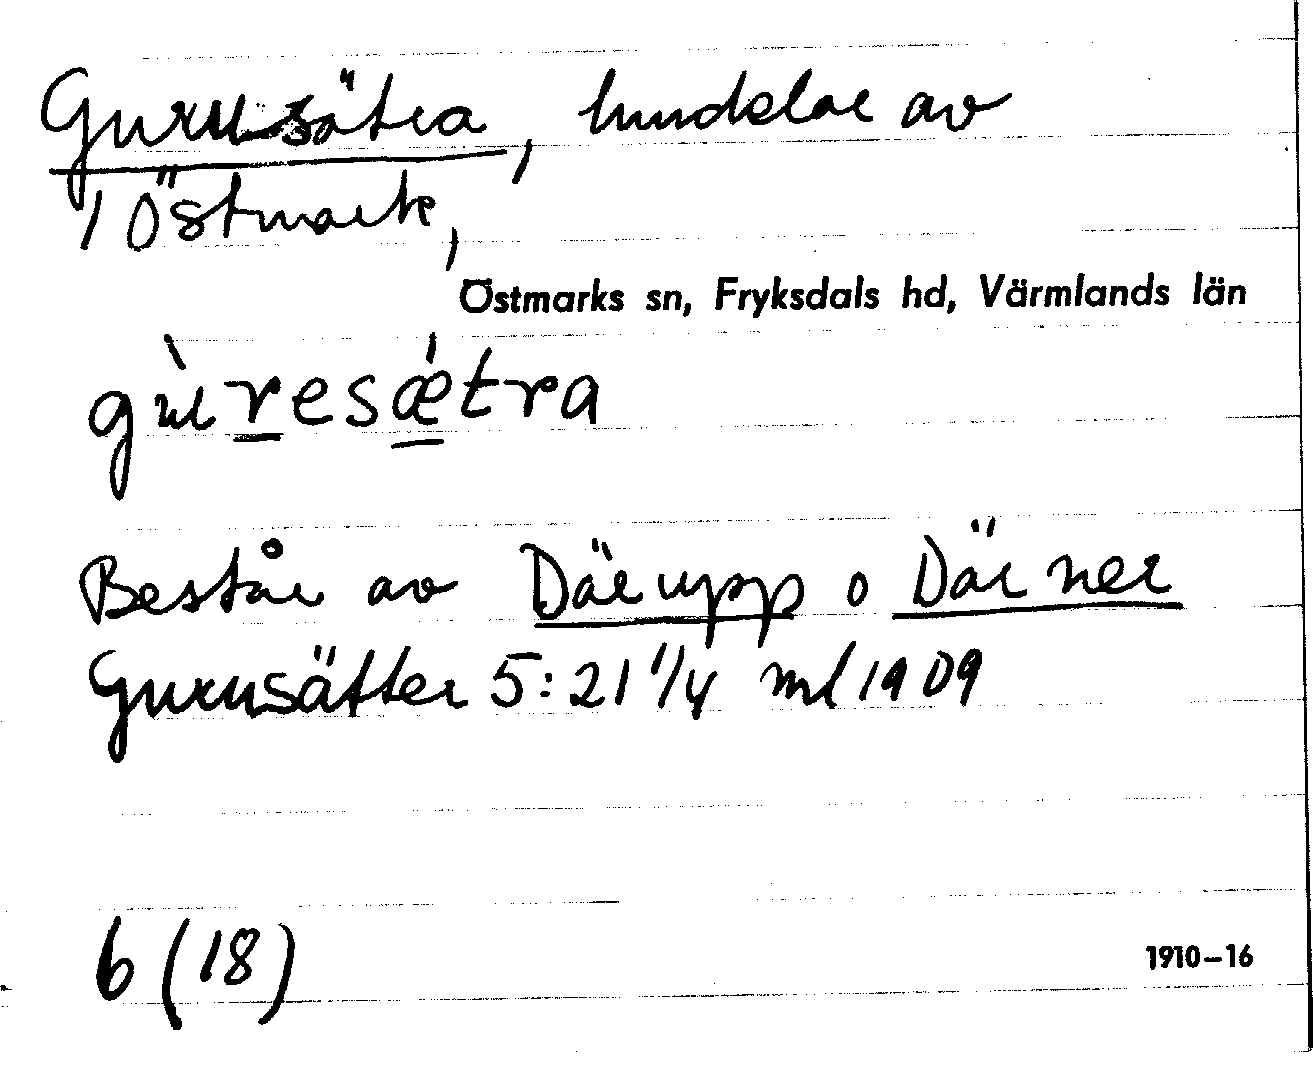 Gurusätra, hundelar av
1 Östmark,
Östmarks sn, Fryksdals hd, Värmlands län
gùresǽtra
Består av Där upp o Där ner
Gurusätter 5:21 1/4 ml 1909
6 (18)
1910–16